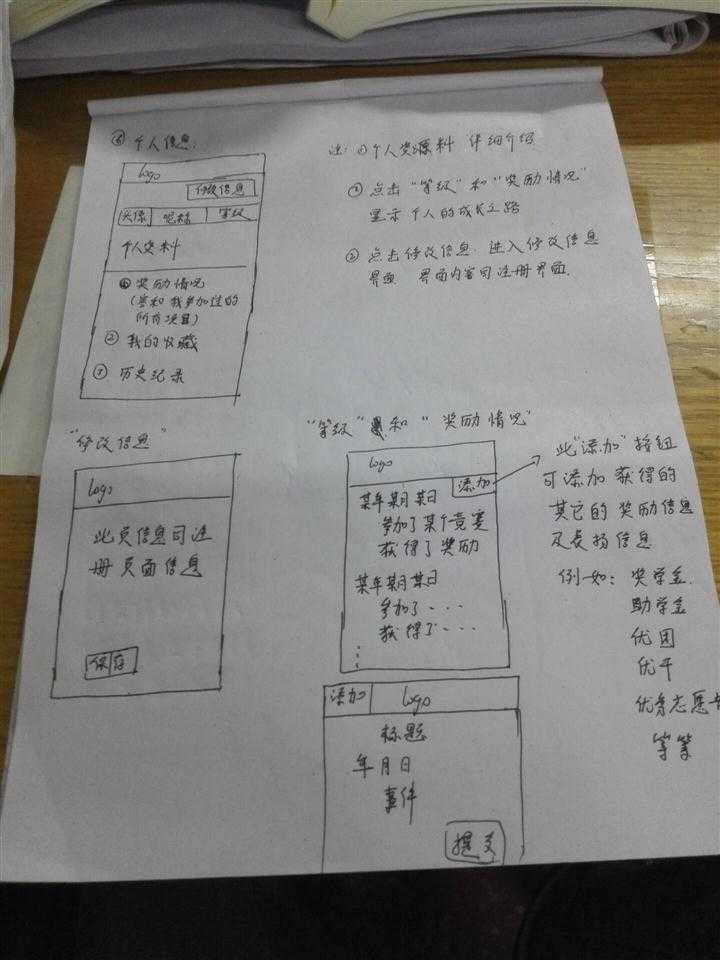 ⑥ 个人信息:
logo
修改信息
头像 昵称 等级
个人资料
① 奖励情况
(奖和我参加过的
所有项目)
② 我的收藏
③ 历史纪录
注: ①个人资源料 详细介绍
① 点击“等级”和“奖励情况”
显示个人的成长之路
② 点击修改信息, 进入修改信息
界面 界面内容同注册界面.
“修改信息”
logo
此页信息同注
册页面信息
保存
“等级”和“奖励情况”
logo
添加
某年某月某日
参加了某个竞赛
获得了奖励
某年某月某日
参加了···
获得了···
⋮
此“添加”按钮
可添加获得的
其它的奖励信息
及表扬信息
例如: 奖学金.
助学金
优团
优干
优秀志愿
等等
添加 logo
标题
年月日
事件
提交